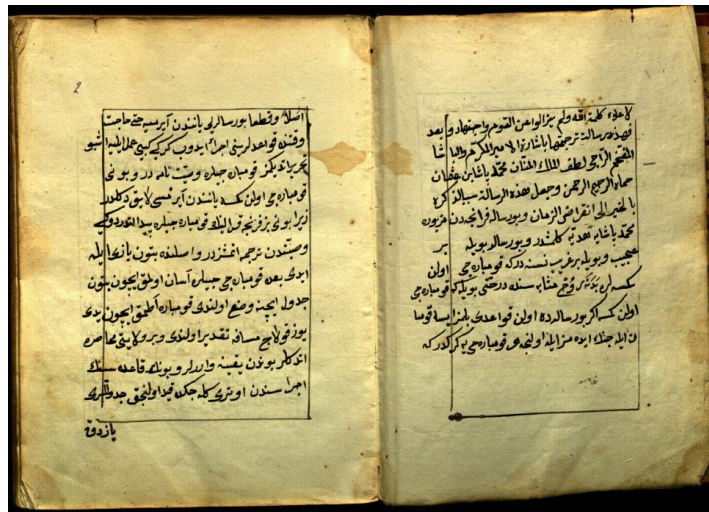 لاعلاء كلمة الله ولم يزالوا عن القوم واجتهاد وبعد
فهذه رسالة ترجمتها باشارة الامير المكرم والباشا
المفخم الراجى لطف الملك المنان محمد پاشا بن عثمان
حماه الرحيم الرحمن وجعل هذه الرسالة سببا لذكره
بالخير الى انقراض الزمان وبو رساله فرانجه دن مزبوره
محمد پاشايه هديه كلمشدر وبو رساله بويله بر
عجيب وبويله بر غريب نسنه دركه قومباره جى اولن
كمسه لره بدنده روح مثابه سنده در حتى بويله كه قومباره جى
اولن كمسه اكر بو رساله ده اولن قواعدى بلمز ايسه قومبا
ره ايله جنك ايده مز ايله اولنجه هر قومباره جى يه كركدر كه
2
اصلا وقطعا بو رساله يى ياندن آيرميه حتى حاجت
وقتنده قواعدلرينى اجرا ايدوب كركى كبى عمل ايليه اشبو
تحرير اتديكمز قومباره جيلره وصيت نامه در وبونى
قومباره جى اولن كمسه ياندن آيرمسى لايق دكلدر
زيرا بونى بز فرنجه قرالينك قومباره جيلره پيدا
وصيتندن ترجمه اتمشزدر واصلنده بتون يازى ايله
ايدى بعده قومباره جيلره آسان اولمق ايچون بتون
جدول ايچنه وضع اولندى قومباره آطمق ايچون يدى
يوز قولاج مسافه تقدير اولندى وبر ولايتى محاصره
اتدكلر بوندن يقينه واررلر وبونك قاعده سنك
اجراسندن اوترى كله جكده قيد اولنجق جدوللرى
يازدق